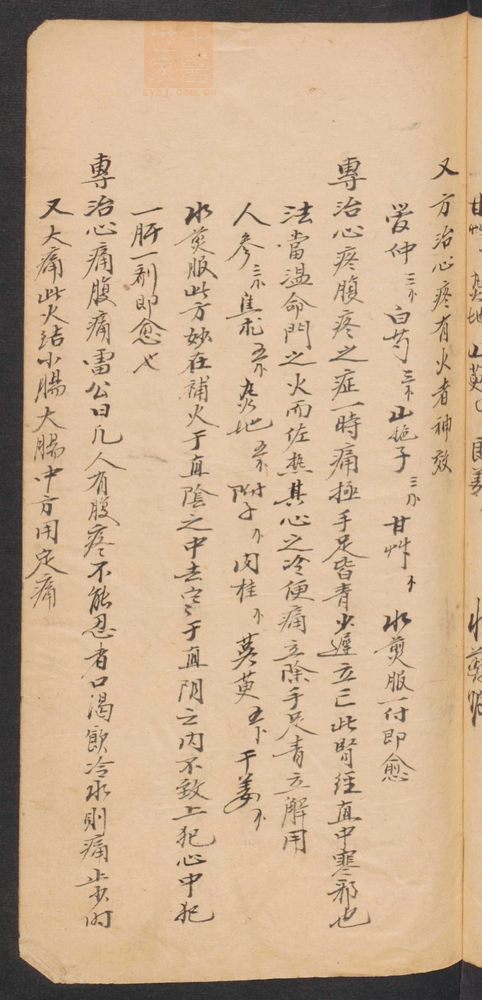 又方治心疼有火者神效
贯仲三卜 白芍三卜 山梔子三卜 甘艸卜 水煎服一付即愈
專治心疼腹疼之症一時痛極手足皆青少遲立亡此腎经直中寒邪也
法當温命門之火而佐热其心之冷便痛立除手足青立解用
人參三卜 焦朮五卜 熟地五卜 附子卜 肉桂卜 萸五卜 干姜卜
水煎服此方妙在補火于直陰之中去寒于直阴之内不致上犯心中犯
一肝一剤即愈也
專治心痛腹痛雷公曰凡人有腹疼不能忍者口渴飲冷水則痛止少时
又大痛此火结小腸大腸中方用定痛
甘艸 熟地 山萸
水煎服
中醫世家
zysj.com.cn